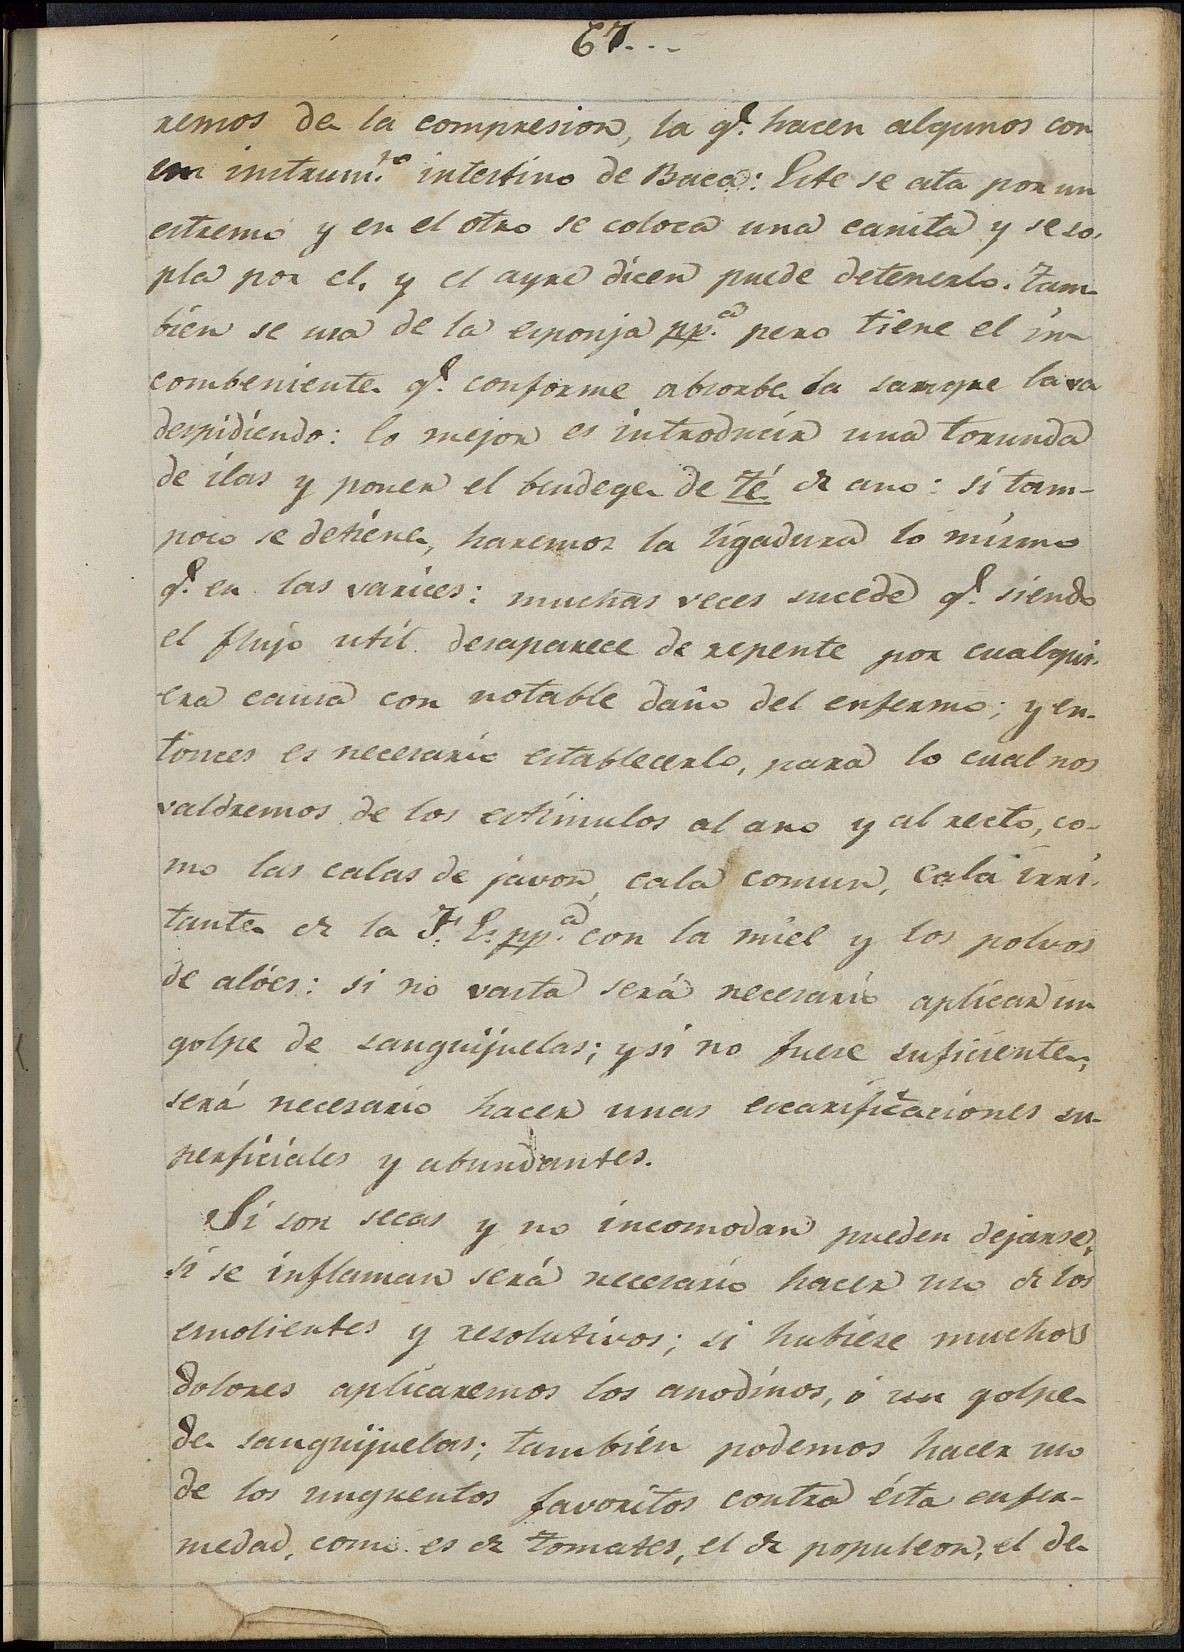 67...
remos de la compresion, la q.e hacen algunos con
un instrum.to intestino de Baca: Este se ata por un
estremo y en el otro se coloca una canita y se so-
pla por el, y el ayre dicen puede detenerlo. Tam-
bien se usa de la esponja pp.ª pero tiene el in-
combeniente q.e conforme absorbe la sangre la va
despidiendo: lo mejor es introducir una torunda
de ilas y poner el bendege de Té de ano: si tam-
poco se detiene, haremos la ligadura lo mismo
q.e en las varices: muchas veces sucede q.e siendo
el flujo util desaparece de repente por cualqui-
era causa con notable daño del enfermo; y en-
tonces es necesario establecerlo, para lo cual nos
valdremos de los estimulos al ano y al recto, co-
mo las calas de javon, cala comun, cala irri-
tante de la F. E. pp.ª con la miel y los polvos
de alóes: si no vasta será necesario aplicar un
golpe de sanguijuelas; y si no fuese suficiente,
será necesario hacer unas escarificaciones su-
perficiales y abundantes.
Si son secas y no incomodan pueden dejarse,
si se inflaman será necesario hacer uso de los
emolientes y resolutivos; si hubiese muchos
dolores aplicaremos los anodinos, ó un golpe
de sanguijuelas; tambien podemos hacer uso
de los unguentos favoritos contra ésta enfer-
medad, como es de tomates, el de populeon, el de